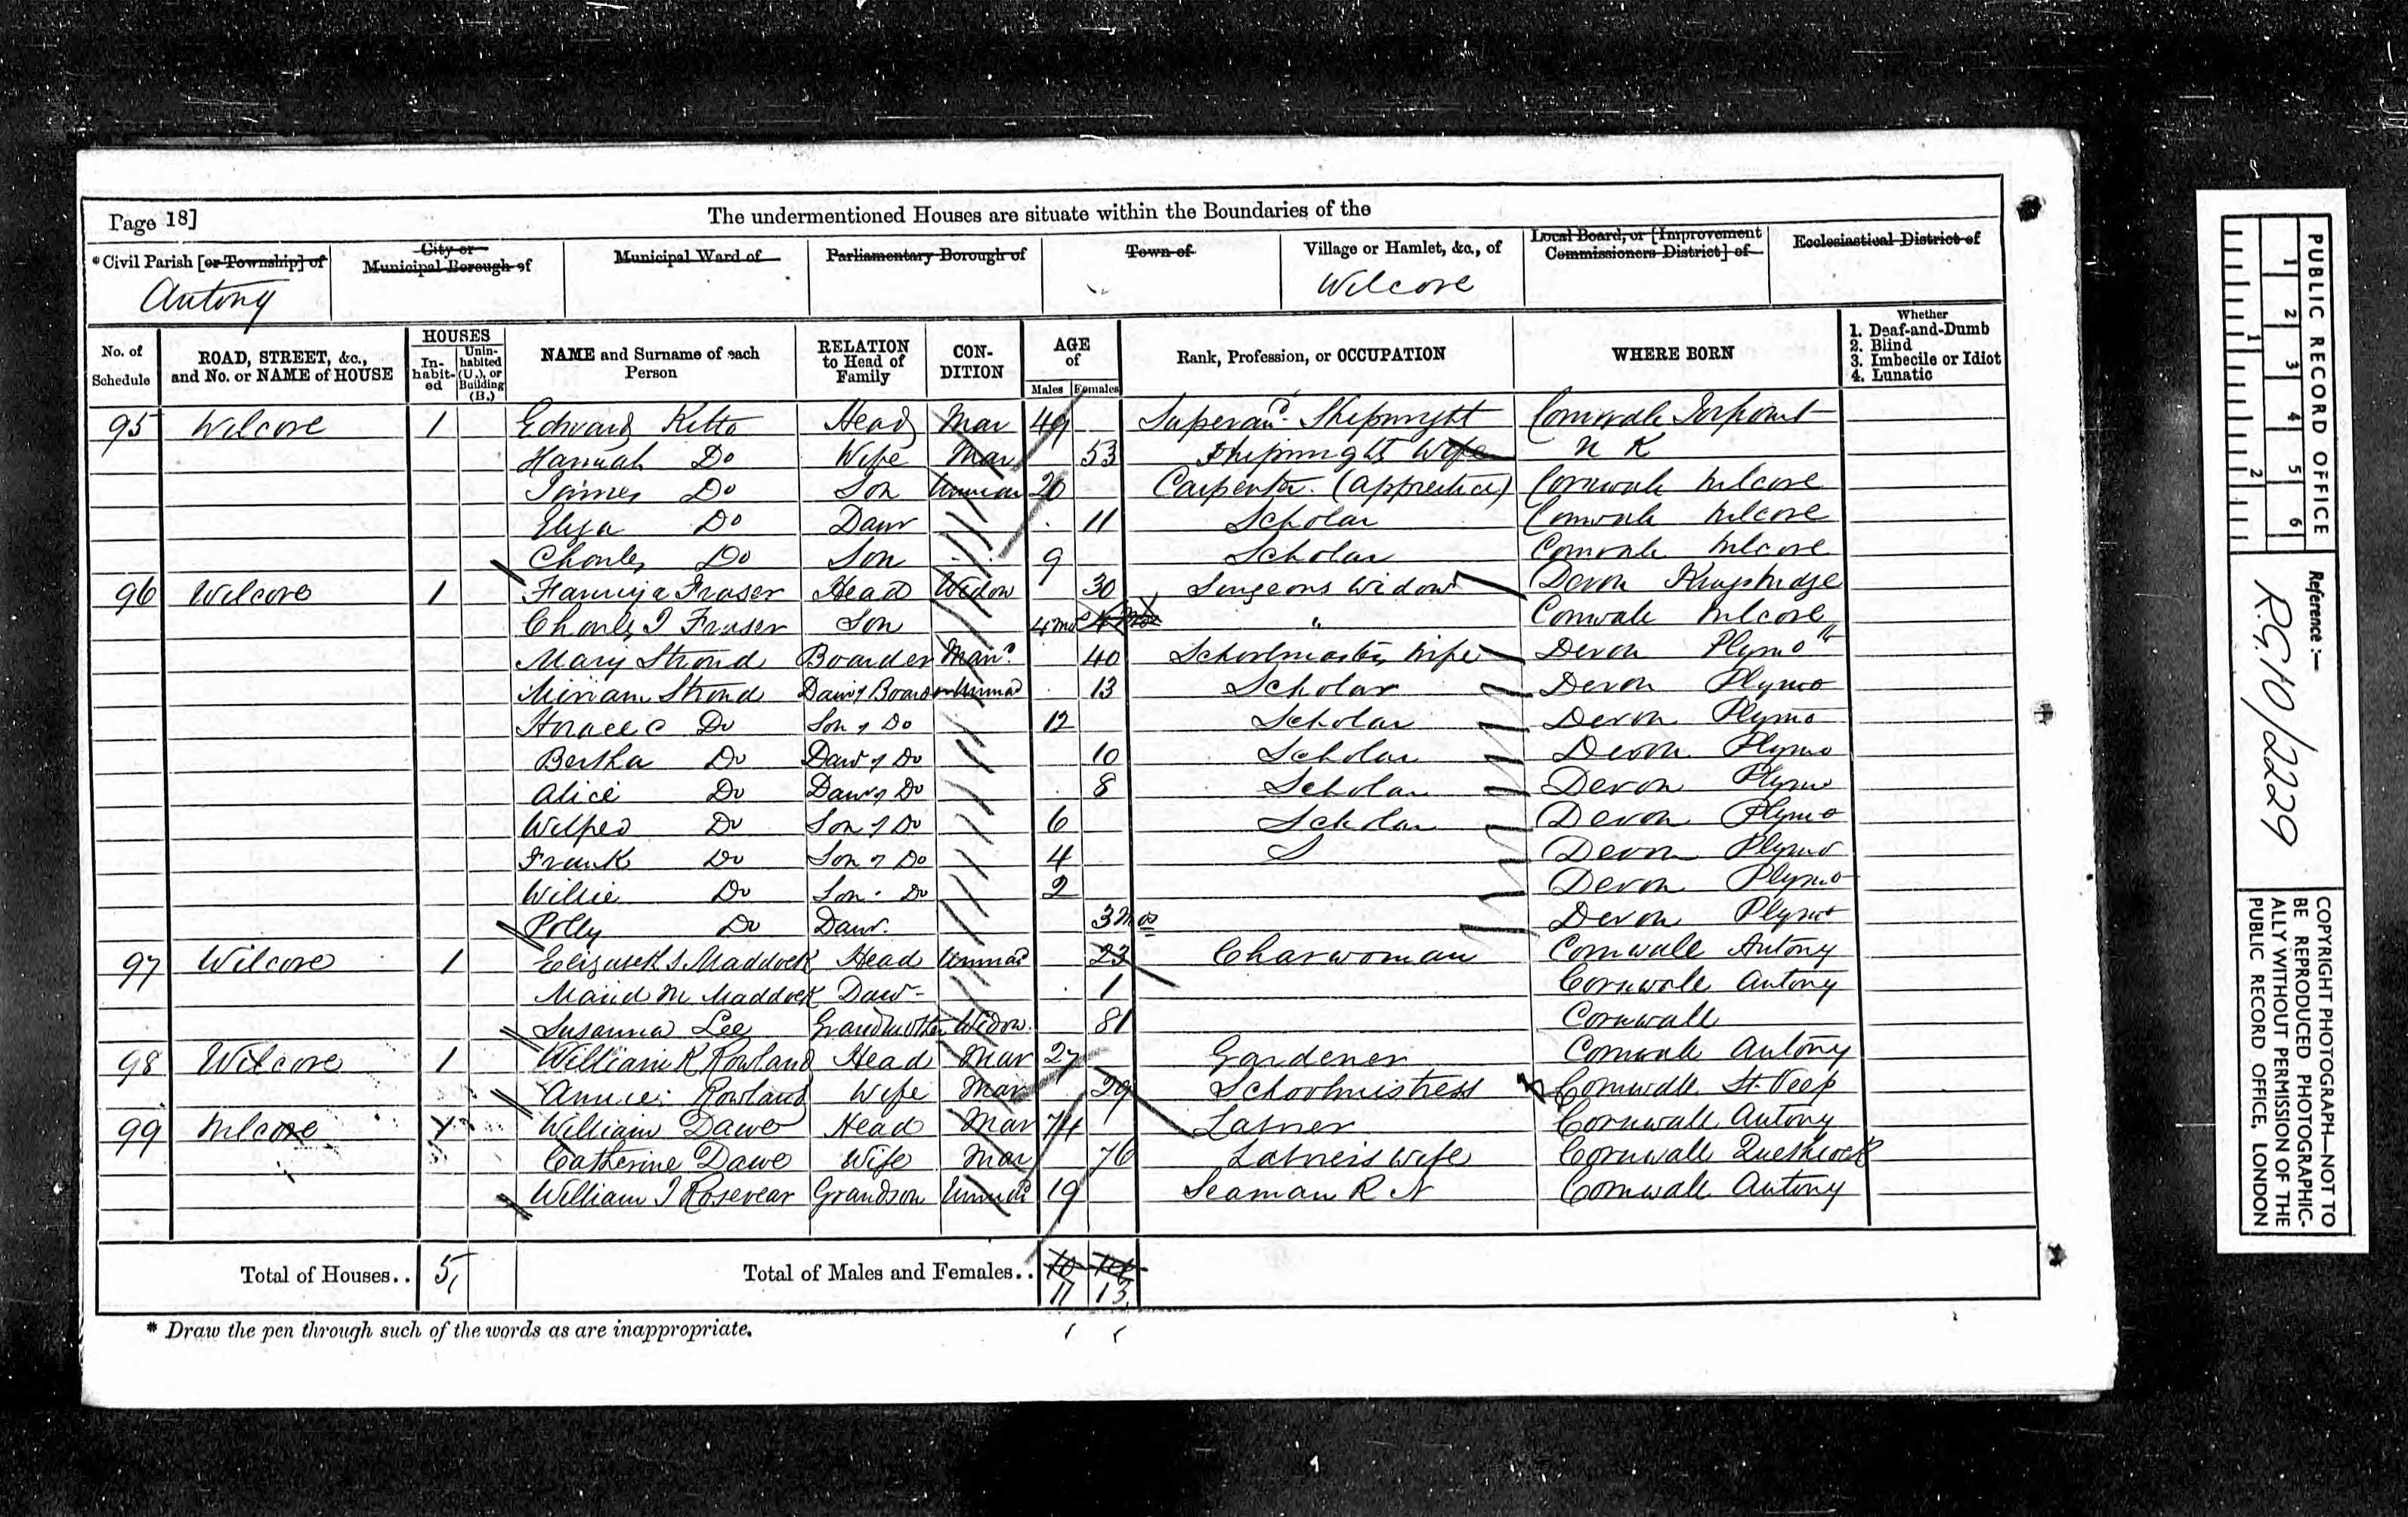 Page 18]
The undermentioned Houses are situate within the Boundaries of the
*Civil Parish [or Township] of
City or Municipal Borough of
Municipal Ward of
Parliamentary Borough of
Town of
Village or Hamlet, &c., of
Local Board, or [Improvement Commissioners District] of
Ecclesiastical District of
Antony
Wilcove
No. of Schedule
ROAD, STREET, &c., and No. or NAME of HOUSE
HOUSES
In-habit-ed
Unin-habited (U.), or Building (B.)
NAME and Surname of each Person
RELATION to Head of Family
CON-DITION
AGE of
Males Females
Rank, Profession, or OCCUPATION
WHERE BORN
Whether
1. Deaf-and-Dumb
2. Blind
3. Imbecile or Idiot
4. Lunatic
95 Wilcove 1 Edward Kitto Head Mar 49 Superand. Shipwright Cornwale Torpoint
Hannah Do Wife Mar 53 Shipwrights Wife N K
James Do Son Unmar 20 Carpenter (apprentice) Cornwale Wilcove
Eliza Do Daur 11 Scholar Cornwale Wilcove
Charles Do Son 9 Scholar Cornwale Wilcove
96 Wilcove 1 Fraser Head Widow 30 Surgeons Widow Devon Kingsbridge
Charles J Fraser Son 4 mos 4 mos " Cornwale Wilcove
Mary Strond Boarder Mard 40 Schoolmasters Wife Devon Plymoth
Miriam Strond Daur of Boarder Unmad 13 Scholar Devon Plymo
Horace C Do Son of Do 12 Scholar Devon Plymo
Bertha Do Daur of Do 10 Scholar Devon Plymo
Alice Do Daur of Do 8 Scholar Devon Plymo
Wilfred Do Son of Do 6 Scholar Devon Plymo
Frank Do Son of Do 4 S Devon Plymo
Willie Do Son Do 2 Devon Plymo
Polly Do Daur. 3 mos Devon Plymo
97 Wilcove 1 Elizabeth S Maddock Head Unmad 23 Charwoman Cornwall Antony
Maud M Maddock Daur 1 Cornwale Antony
Susanna Lee Grandmother Widow. 81 Cornwall
98 Wilcove 1 William K Rowland Head Mar 27 Gardener Cornwale Antony
Annie Rowland Wife Mar 29 Schoolmistress Cornwall St. Veep
99 Wilcove 1 William Dawe Head Mar 74 Labrer Cornwall Antony
Catherine Dawe Wife Mar 76 Labrers Wife Cornwall
William J Rosevear Grandson Unmad 19 Seaman R N Cornwall Antony
Total of Houses.. 5 Total of Males and Females.. 10 14
11 13
* Draw the pen through such of the words as are inappropriate.
PUBLIC RECORD OFFICE
1 2 3 4 5 6
1 2
Reference:—
R.G.10/2229
COPYRIGHT PHOTOGRAPH—NOT TO
BE REPRODUCED PHOTOGRAPHIC-
ALLY WITHOUT PERMISSION OF THE
PUBLIC RECORD OFFICE, LONDON